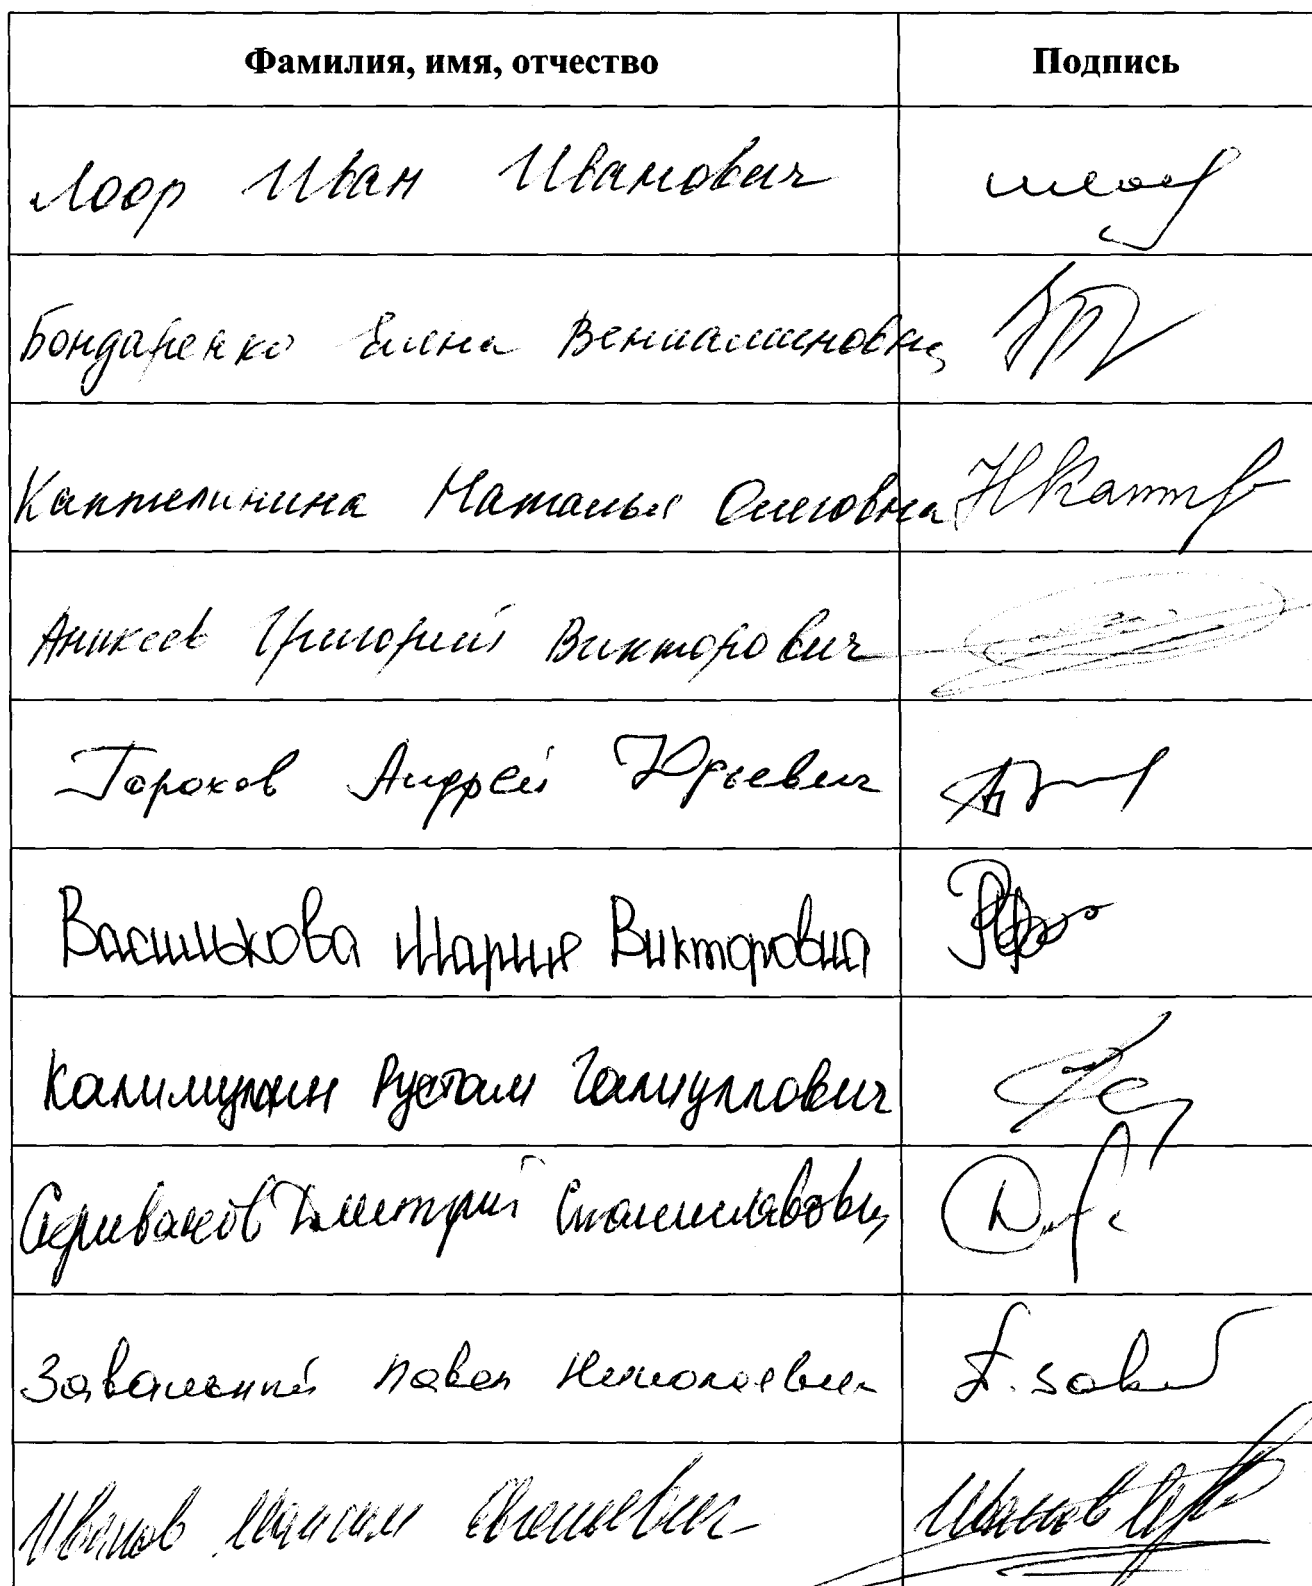 Фамилия, имя, отчество Подпись
Лоор Иван Иванович
Бондаренко Елена Вениаминовна
Каптелинина Наталья Олеговна
Аникеев Григорий Викторович
Горохов Андрей Юрьевич
Василькова Мария Викторовна
Калимуллин Рустам Галиуллович
Скриванов Дмитрий Станиславович
Завальный Павел Николаевич
Иванов Максим Евгеньевич